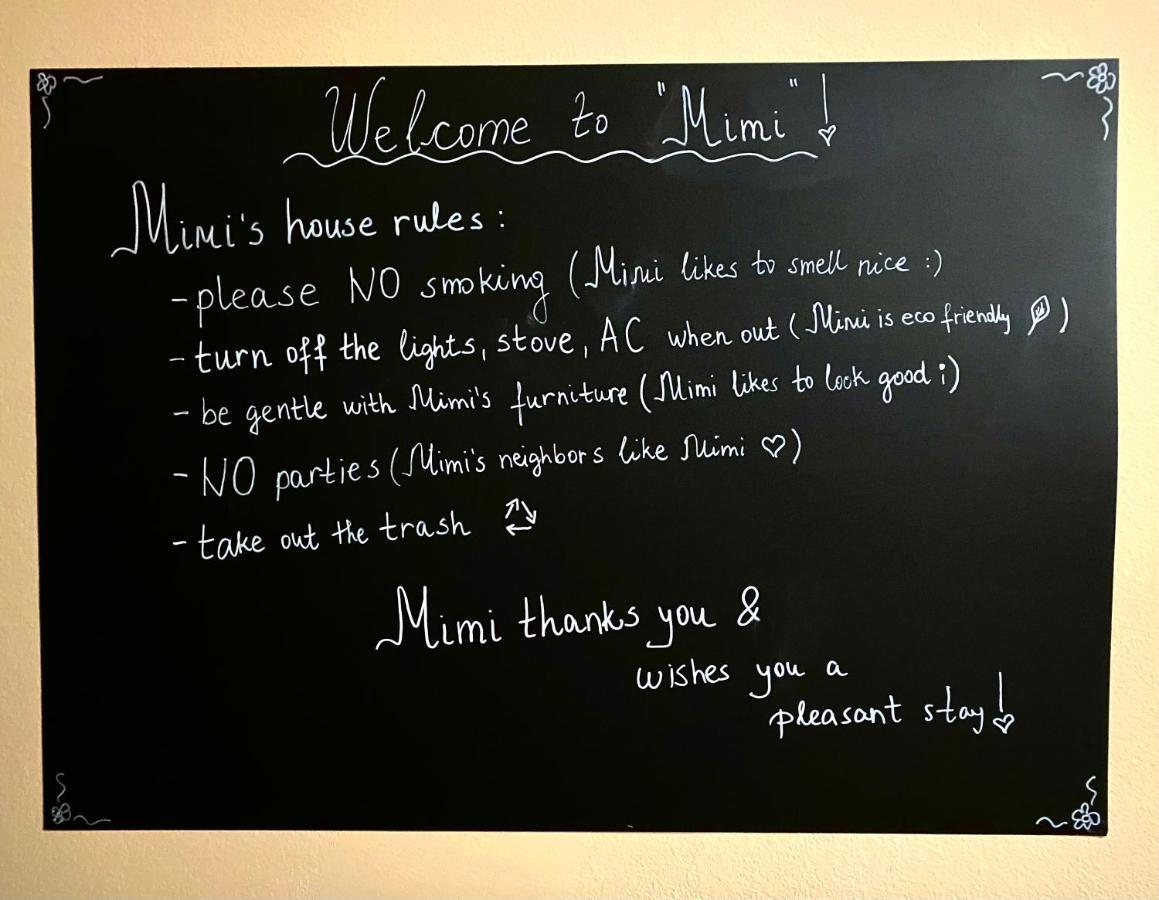 Welcome to "Mimi"!
Mimi's house rules:
- please NO smoking (Mimi likes to smell nice :)
- turn off the lights, stove, AC when out (Mimi is eco friendly)
- be gentle with Mimi's furniture (Mimi likes to look good ;)
- NO parties (Mimi's neighbors like Mimi ♡)
- take out the trash
Mimi thanks you &
wishes you a
pleasant stay!